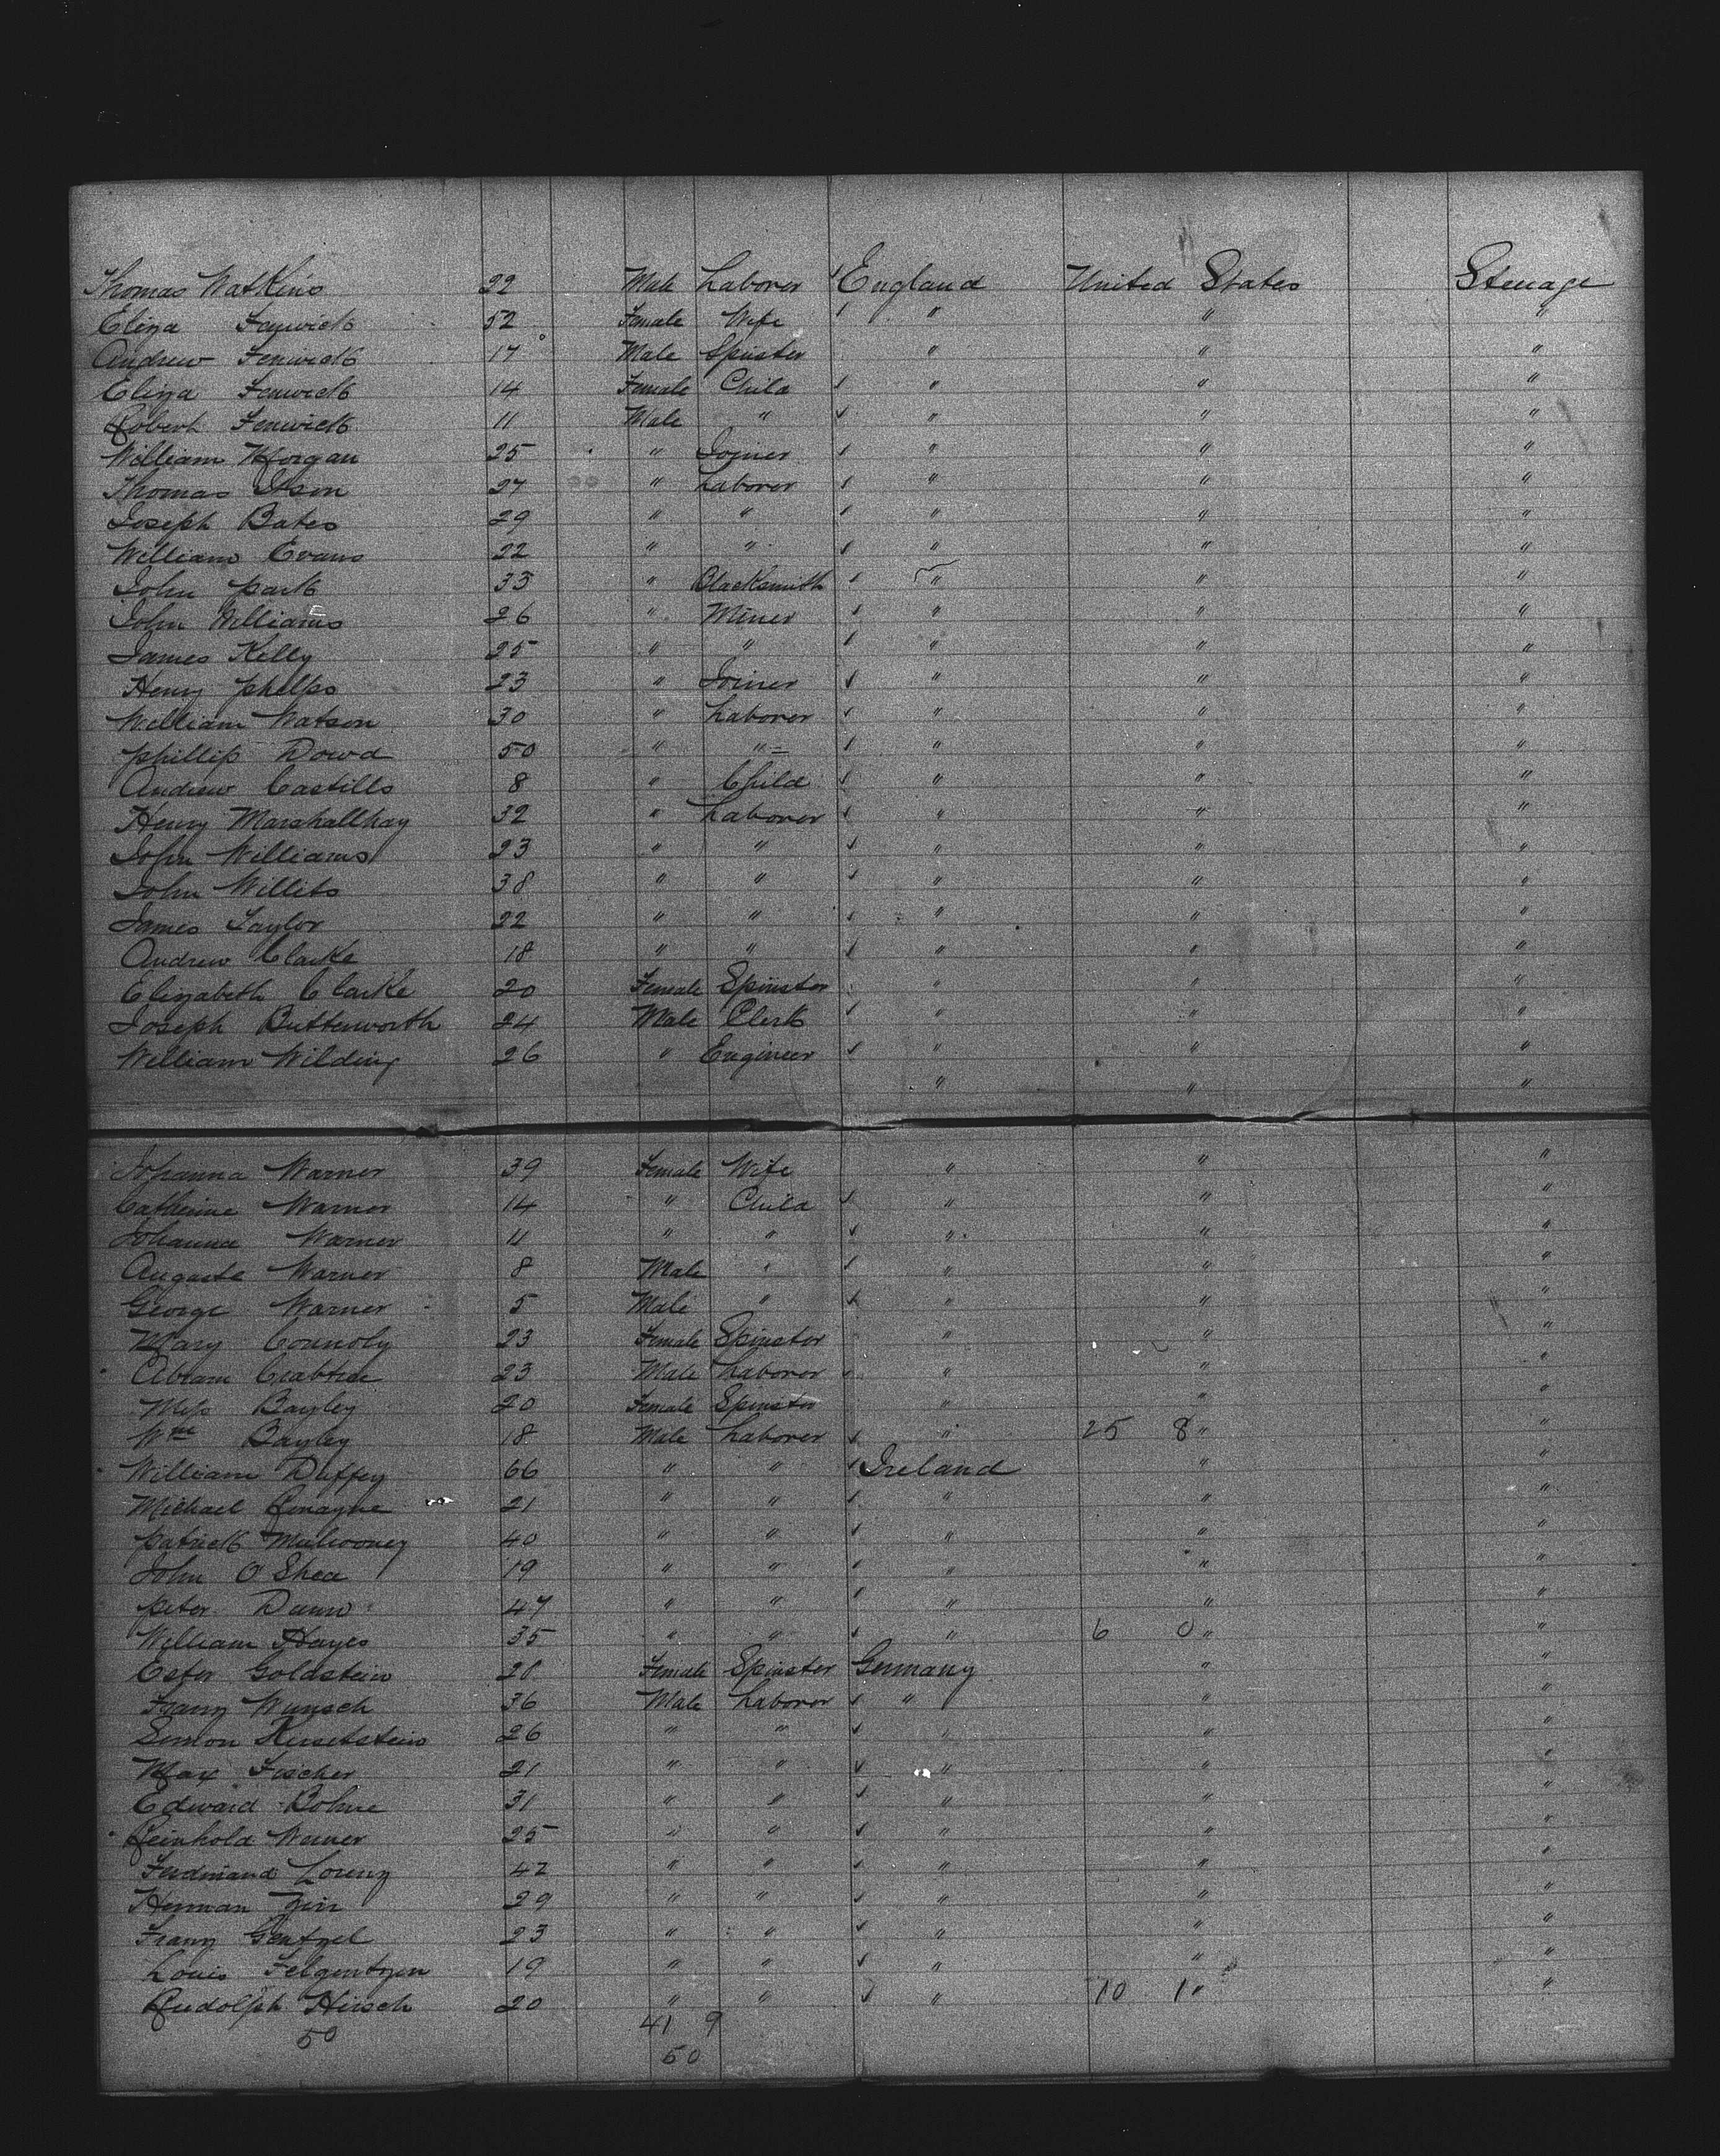 Thomas Watkins 22 Male Laborer England United States Steerage
Eliza Fenwick 52 Female Wife " " "
Andrew Fenwick 17 Male Spinster " " "
Eliza Fenwick 14 Female Child " " "
Robert Fenwick 11 Male " " " "
William Morgan 25 " Joiner " " "
Thomas Ison 27 " Laborer " " "
Joseph Bates 29 " " " " "
William Evans 22 " " " " "
John Park 33 " Blacksmith " " "
John Williams 26 " Miner " " "
James Kelly 25 " " " " "
Henry Phelps 23 " Joiner " " "
William Watson 30 " Laborer " " "
Phillip Dowd 50 " " " " "
Andrew Castills 8 " Child " " "
Henry Marshallhay 32 " Laborer " " "
John Williams 23 " " " " "
John Willits 38 " " " " "
James Taylor 22 " " " " "
Andrew Clarke 18 " " " " "
Elizabeth Clarke 20 Female Spinster " " "
Joseph Butterworth 24 Male Clerk " " "
William Wilding 26 " Engineer " " "
" " "
Johanna Warner 39 Female Wife " " "
Catherine Warner 14 " Child " " "
Johanna Warner 11 " " " " "
Auguste Warner 8 Male " " " "
George Warner 5 Male " " " "
Mary Connoly 23 Female Spinster " "
Abram Crabtree 23 Male Laborer " " "
Miss Bayley 20 Female Spinster " " "
Wm Bayley 18 Male Laborer " 25 8 " "
William Duffey 66 " " Ireland " "
Michael 21 " " " " "
Patrick Mulrooney 40 " " " " "
John O'Shea 19 " " " " "
Peter Dunn 47 " " " " "
William Hayes 35 " " " 6 0 " "
Ester Goldstein 28 Female Spinster Germany " "
Franz Wunsch 36 Male Laborer " " "
Simon 26 " " " " "
Max Fischer 21 " " " " "
Edward Bohne 31 " " " " "
Reinhold Werner 25 " " " " "
Ferdinand Lorenz 42 " " " " "
Herman 29 " " " " "
Franz Gentzel 23 " " " " "
Louis Felgentzen 19 " " " " "
Rudolph Hirsch 20 " " " 10 1 " "
50 41 9
50